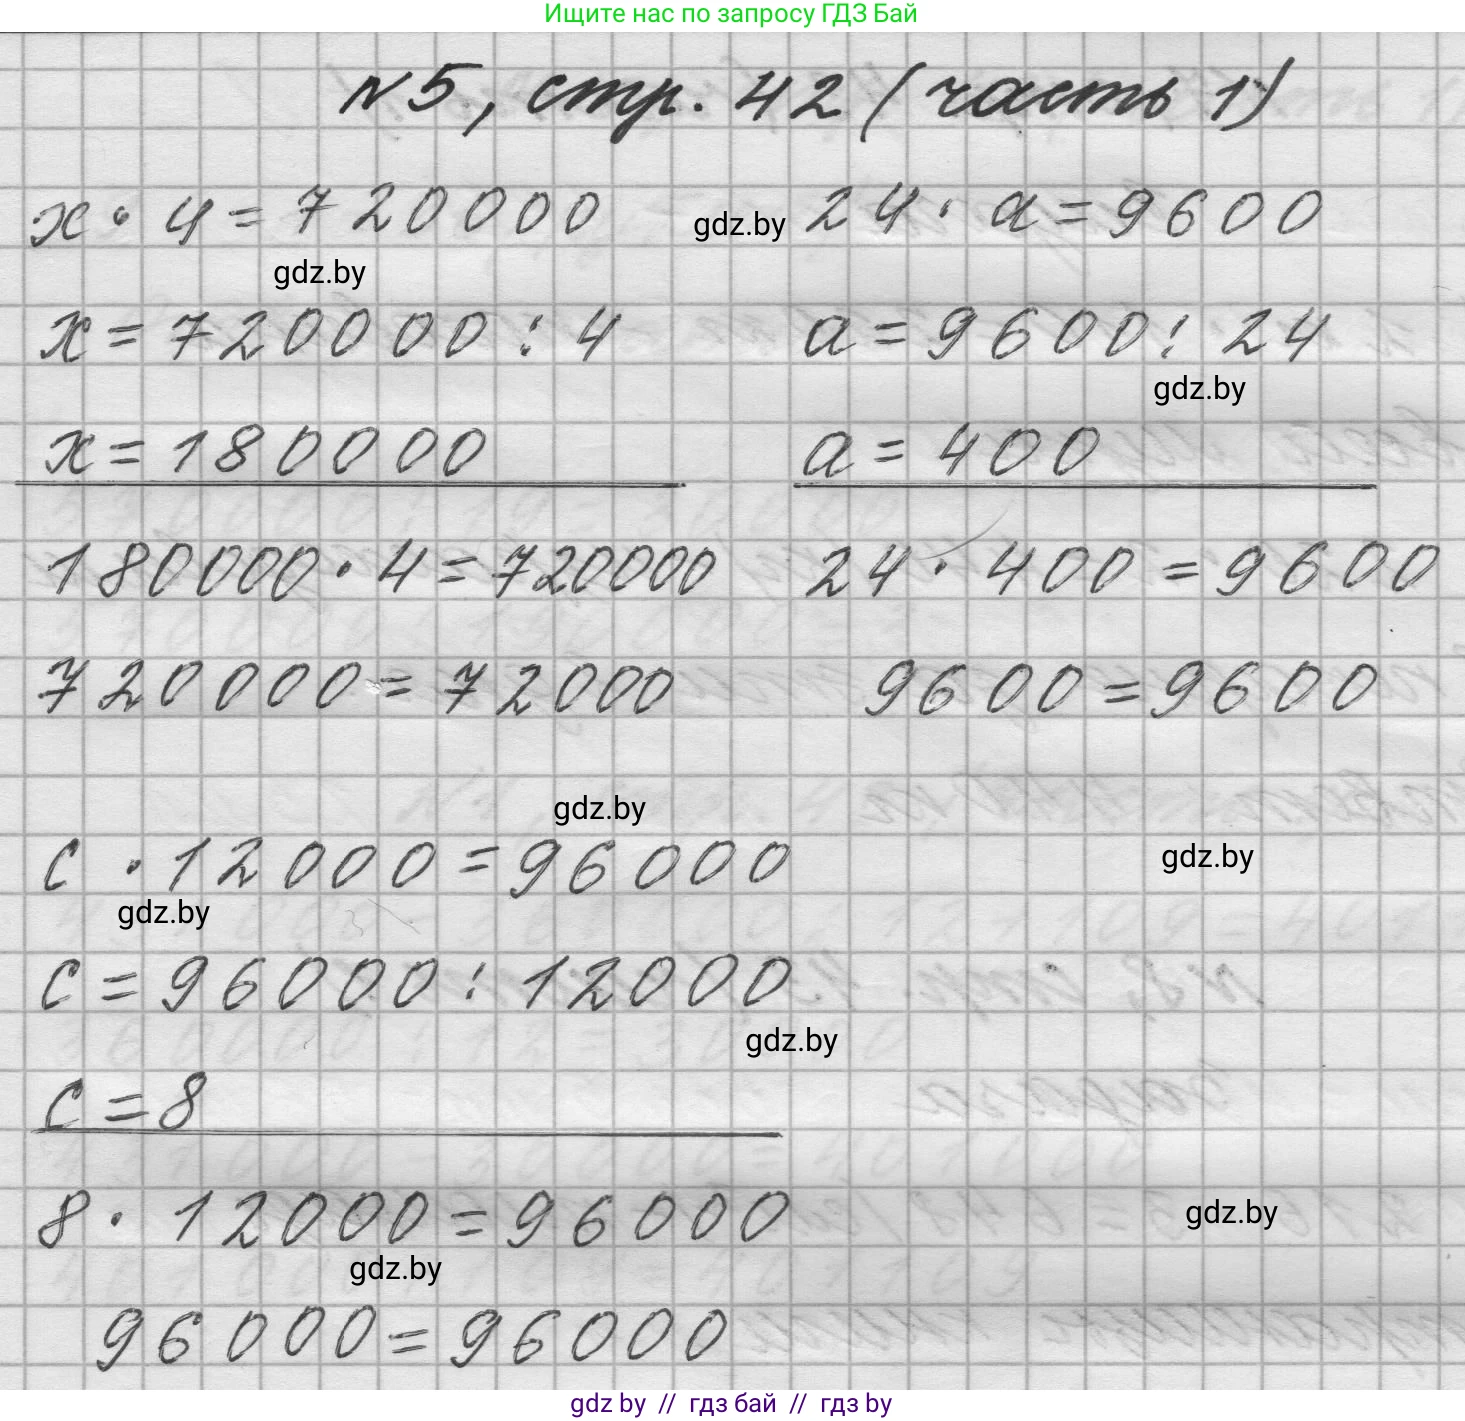 Ищите нас по запросу ГДЗ Бай
N5, стр. 42 (часть 1)
x · 4 = 720000
gdz.by
24 · a = 9600
gdz.by
x = 720000 : 4
a = 9600 : 24
gdz.by
x = 180000
a = 400
180000 · 4 = 720000
24 · 400 = 9600
720000 = 72000
9600 = 9600
gdz.by
c · 12000 = 96000
gdz.by
gdz.by
c = 96000 : 12000
gdz.by
c = 8
8 · 12000 = 96000
gdz.by
gdz.by
96000 = 96000
gdz by // гдз бай // гдз by